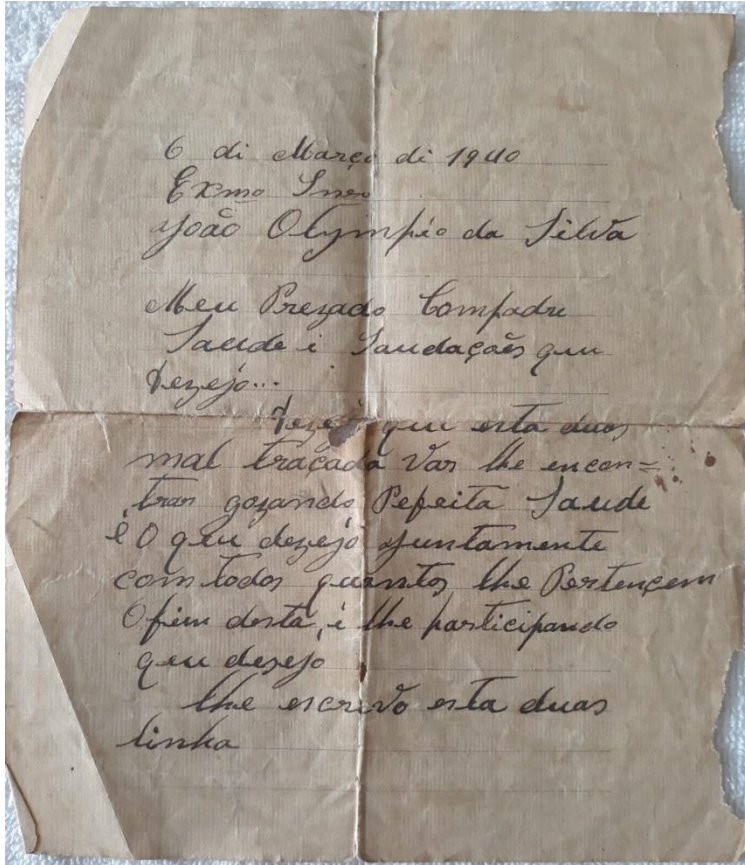 6 di Março di 1940
Exmo Snr
João Olympio da Silva
Meu Prezado Compadre
Saude i Saudações que
Dezejo...
Dezejo que esta duas
mal traçada Vas lhe encon=
tras gozando Pefeita Saude
é O que dezejo Juntamente
com todos quantos lhe Pertençem
O fim desta, i lhe participando
que desejo
lhe escrevo esta duas
linha